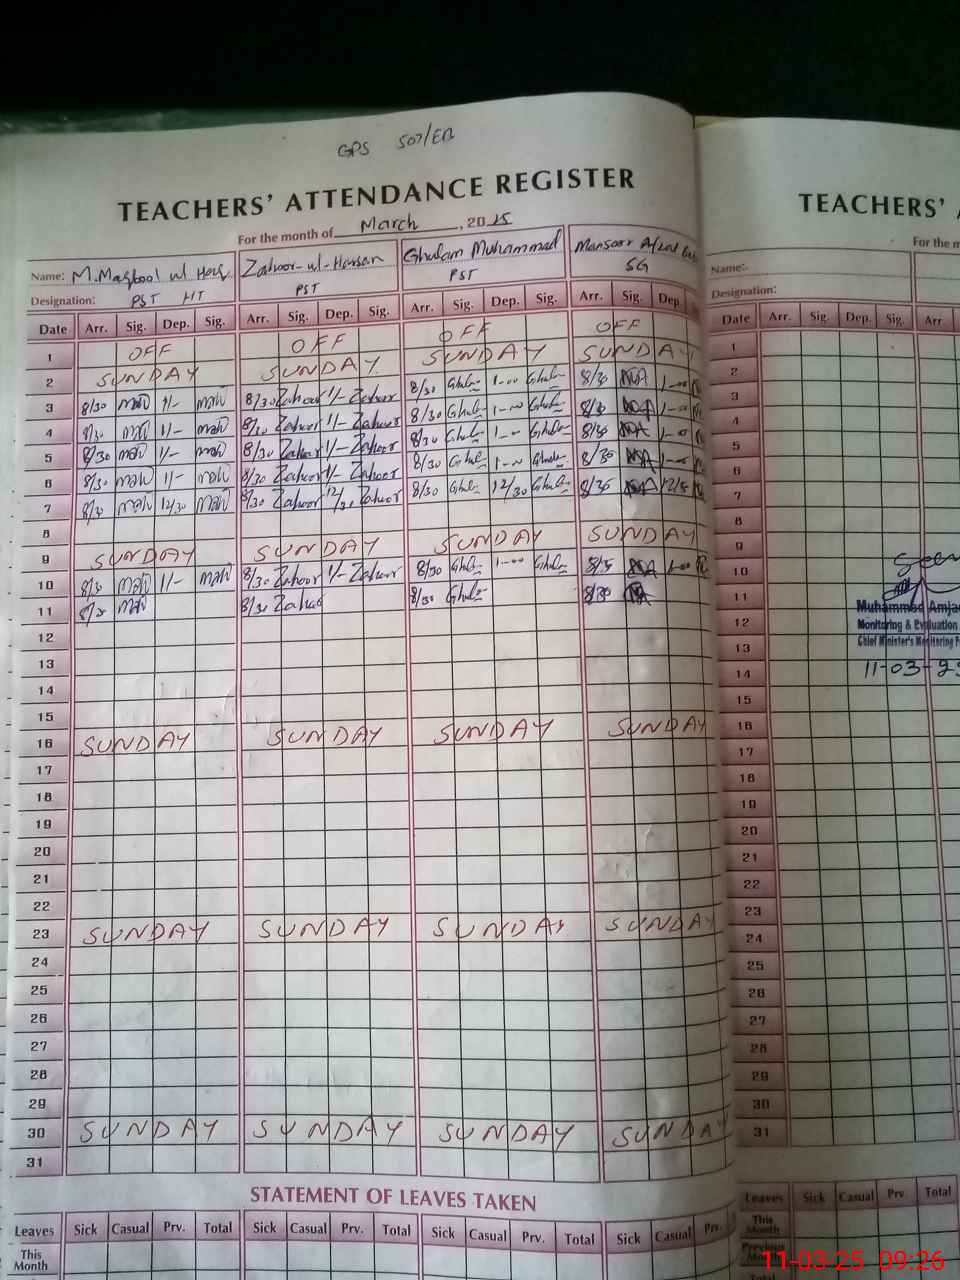 GPS 507/EB
TEACHERS' ATTENDANCE REGISTER
For the month of March, 2025
Name: M. Maqbool ul Haq Zahoor-ul-Hassan Ghulam Muhammad Mansoor Afzal
Designation: PST HT PST PST SG
Date Arr. Sig. Dep. Sig. Arr. Sig. Dep. Sig. Arr. Sig. Dep. Sig. Arr. Sig. Dep.
1 OFF OFF OFF OFF
2 SUNDAY SUNDAY SUNDAY SUNDAY
3 8/30 1/- 8/30 Zahoor 1/- Zahoor 8/30 Ghula 1-00 Ghula 8/30 1-00
4 8/30 1/- 8/30 Zahoor 1/- Zahoor 8/30 Ghula 1-00 Ghula 8/30 1-00
5 8/30 1/- 8/30 Zahoor 1/- Zahoor 8/30 Ghula 1-00 Ghula 8/30 1-00
6 8/30 1/- 8/30 Zahoor 1/- Zahoor 8/30 Ghula 1-00 Ghula 8/30 1-00
7 8/30 12/30 8/30 Zahoor 12/30 Zahoor 8/30 Ghula 12/30 Ghula 8/30
8
9 SUNDAY SUNDAY SUNDAY SUNDAY
10 8/30 1/- 8/30 Zahoor 1/- Zahoor 8/30 Ghula 1-00 Ghula 8/30 1-00
11 8/30 8/30 Zahoor 8/30 Ghula 8/30
12
13
14
15
16 SUNDAY SUNDAY SUNDAY SUNDAY
17
18
19
20
21
22
23 SUNDAY SUNDAY SUNDAY SUNDAY
24
25
26
27
28
29
30 SUNDAY SUNDAY SUNDAY SUNDAY
31
STATEMENT OF LEAVES TAKEN
Leaves Sick Casual Prv. Total Sick Casual Prv. Total Sick Casual Prv. Total Sick Casual Prv.
This Month
TEACHERS'
For the
Name:
Designation:
Date Arr. Sig. Dep. Sig. Arr
1
2
3
4
5
6
7
8
9
10
11
12
13
14
15
16
17
18
19
20
21
22
23
24
25
26
27
28
29
30
31
Seen
Muhammad Amjad
Monitoring & Evaluation
Chief Minister's Monitoring
11-03-25
Leaves Sick Casual Prv. Total
This Month
Previous
Total
11-03-25 09:26